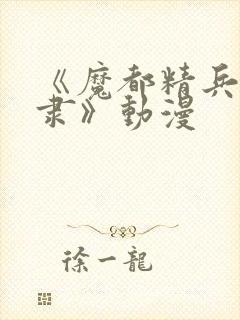 《魔都精兵
隶》動漫
徐一龍